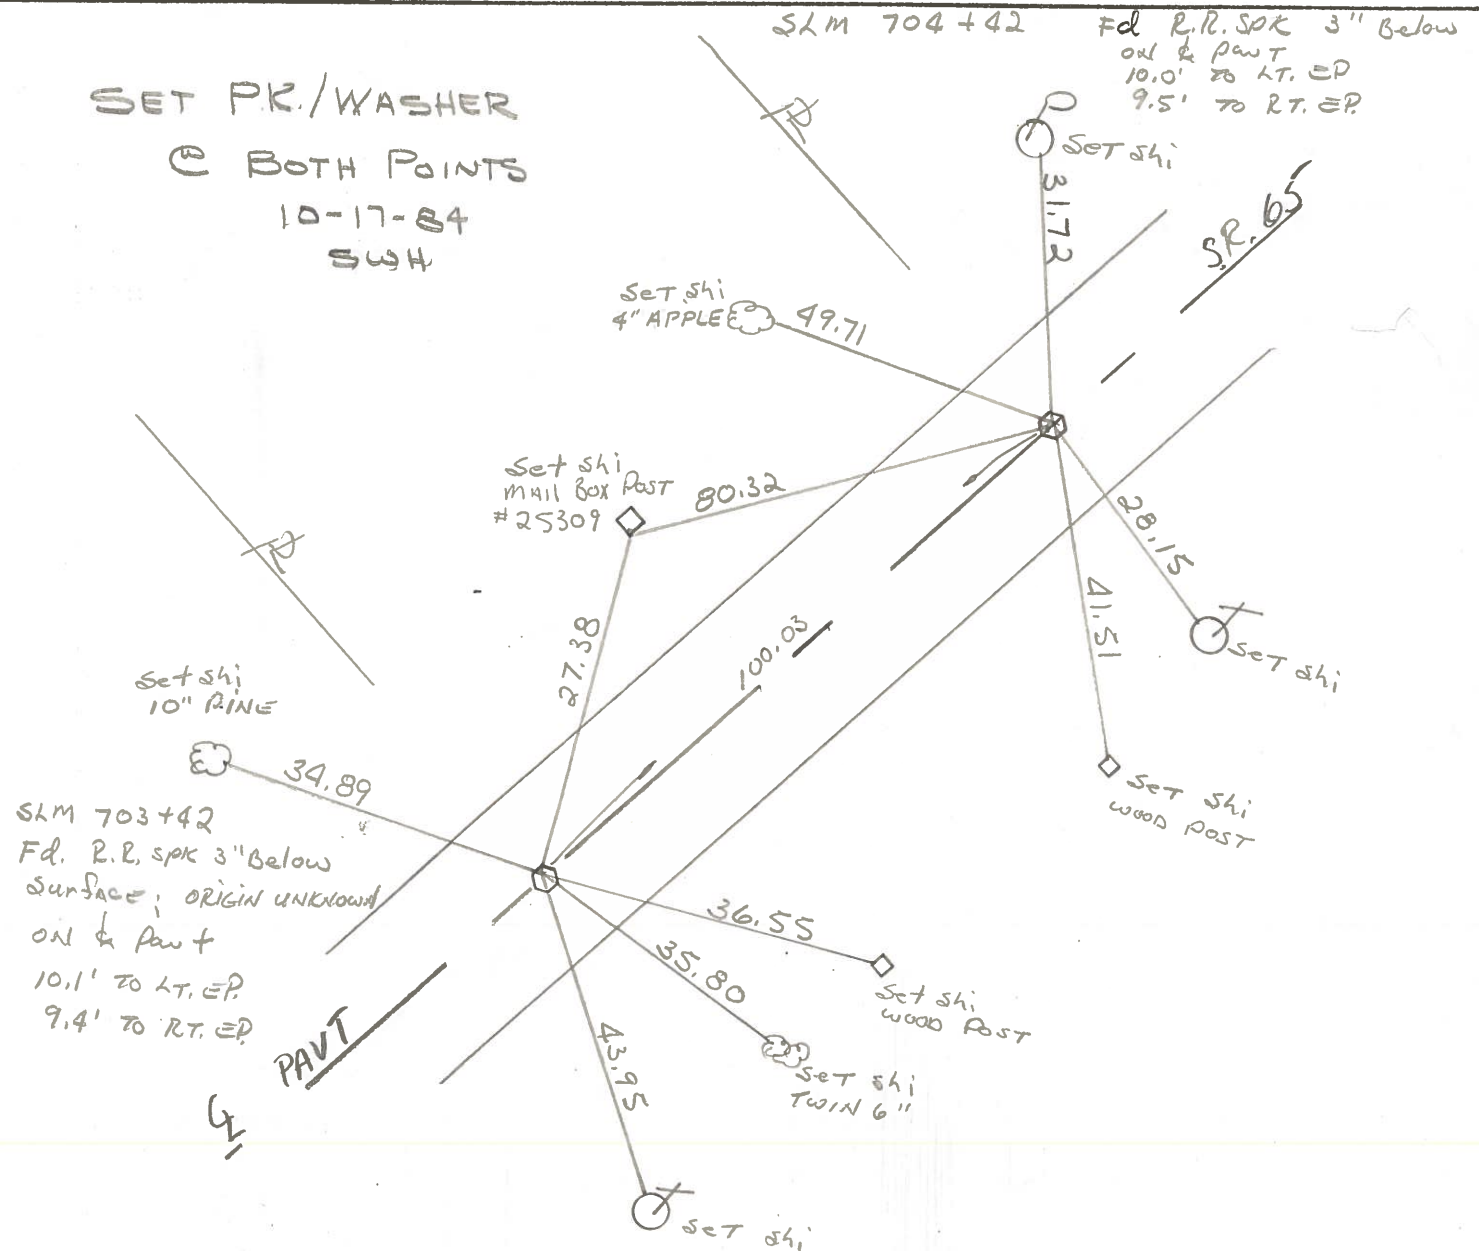 SLM 704+42
Fd R.R. SPK 3" Below
ON ℄ PavT
10.0' TO LT. EP
9.5' TO RT. EP.
SET P.K./WASHER
@ BOTH POINTS
10-17-84
SWH
SeT shi
31.72
S.R. 65
SeT shi
4" APPLE
49.71
Set shi
MAIL BOX POST
#25309
80.32
28.15
SeT shi
41.51
SeT shi
WOOD POST
27.38
100.03
Set shi
10" PINE
34.89
SLM 703+42
Fd. R.R. SPK 3" Below
Surface; ORIGIN UNKNOWN
ON ℄ Pavt
10.1' TO LT. EP.
9.4' TO RT. EP.
36.55
Set shi
WOOD POST
35.80
SeT shi
TWIN 6"
43.95
SeT shi
PAVT
℄